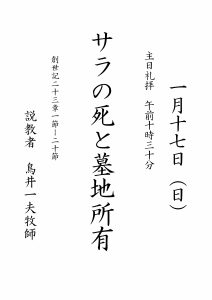 一月十七日（日）
主日礼拝　午前十時三十分
サラの死と墓地所有
創世記二十三章一節－二十節
説教者　鳥井一夫牧師